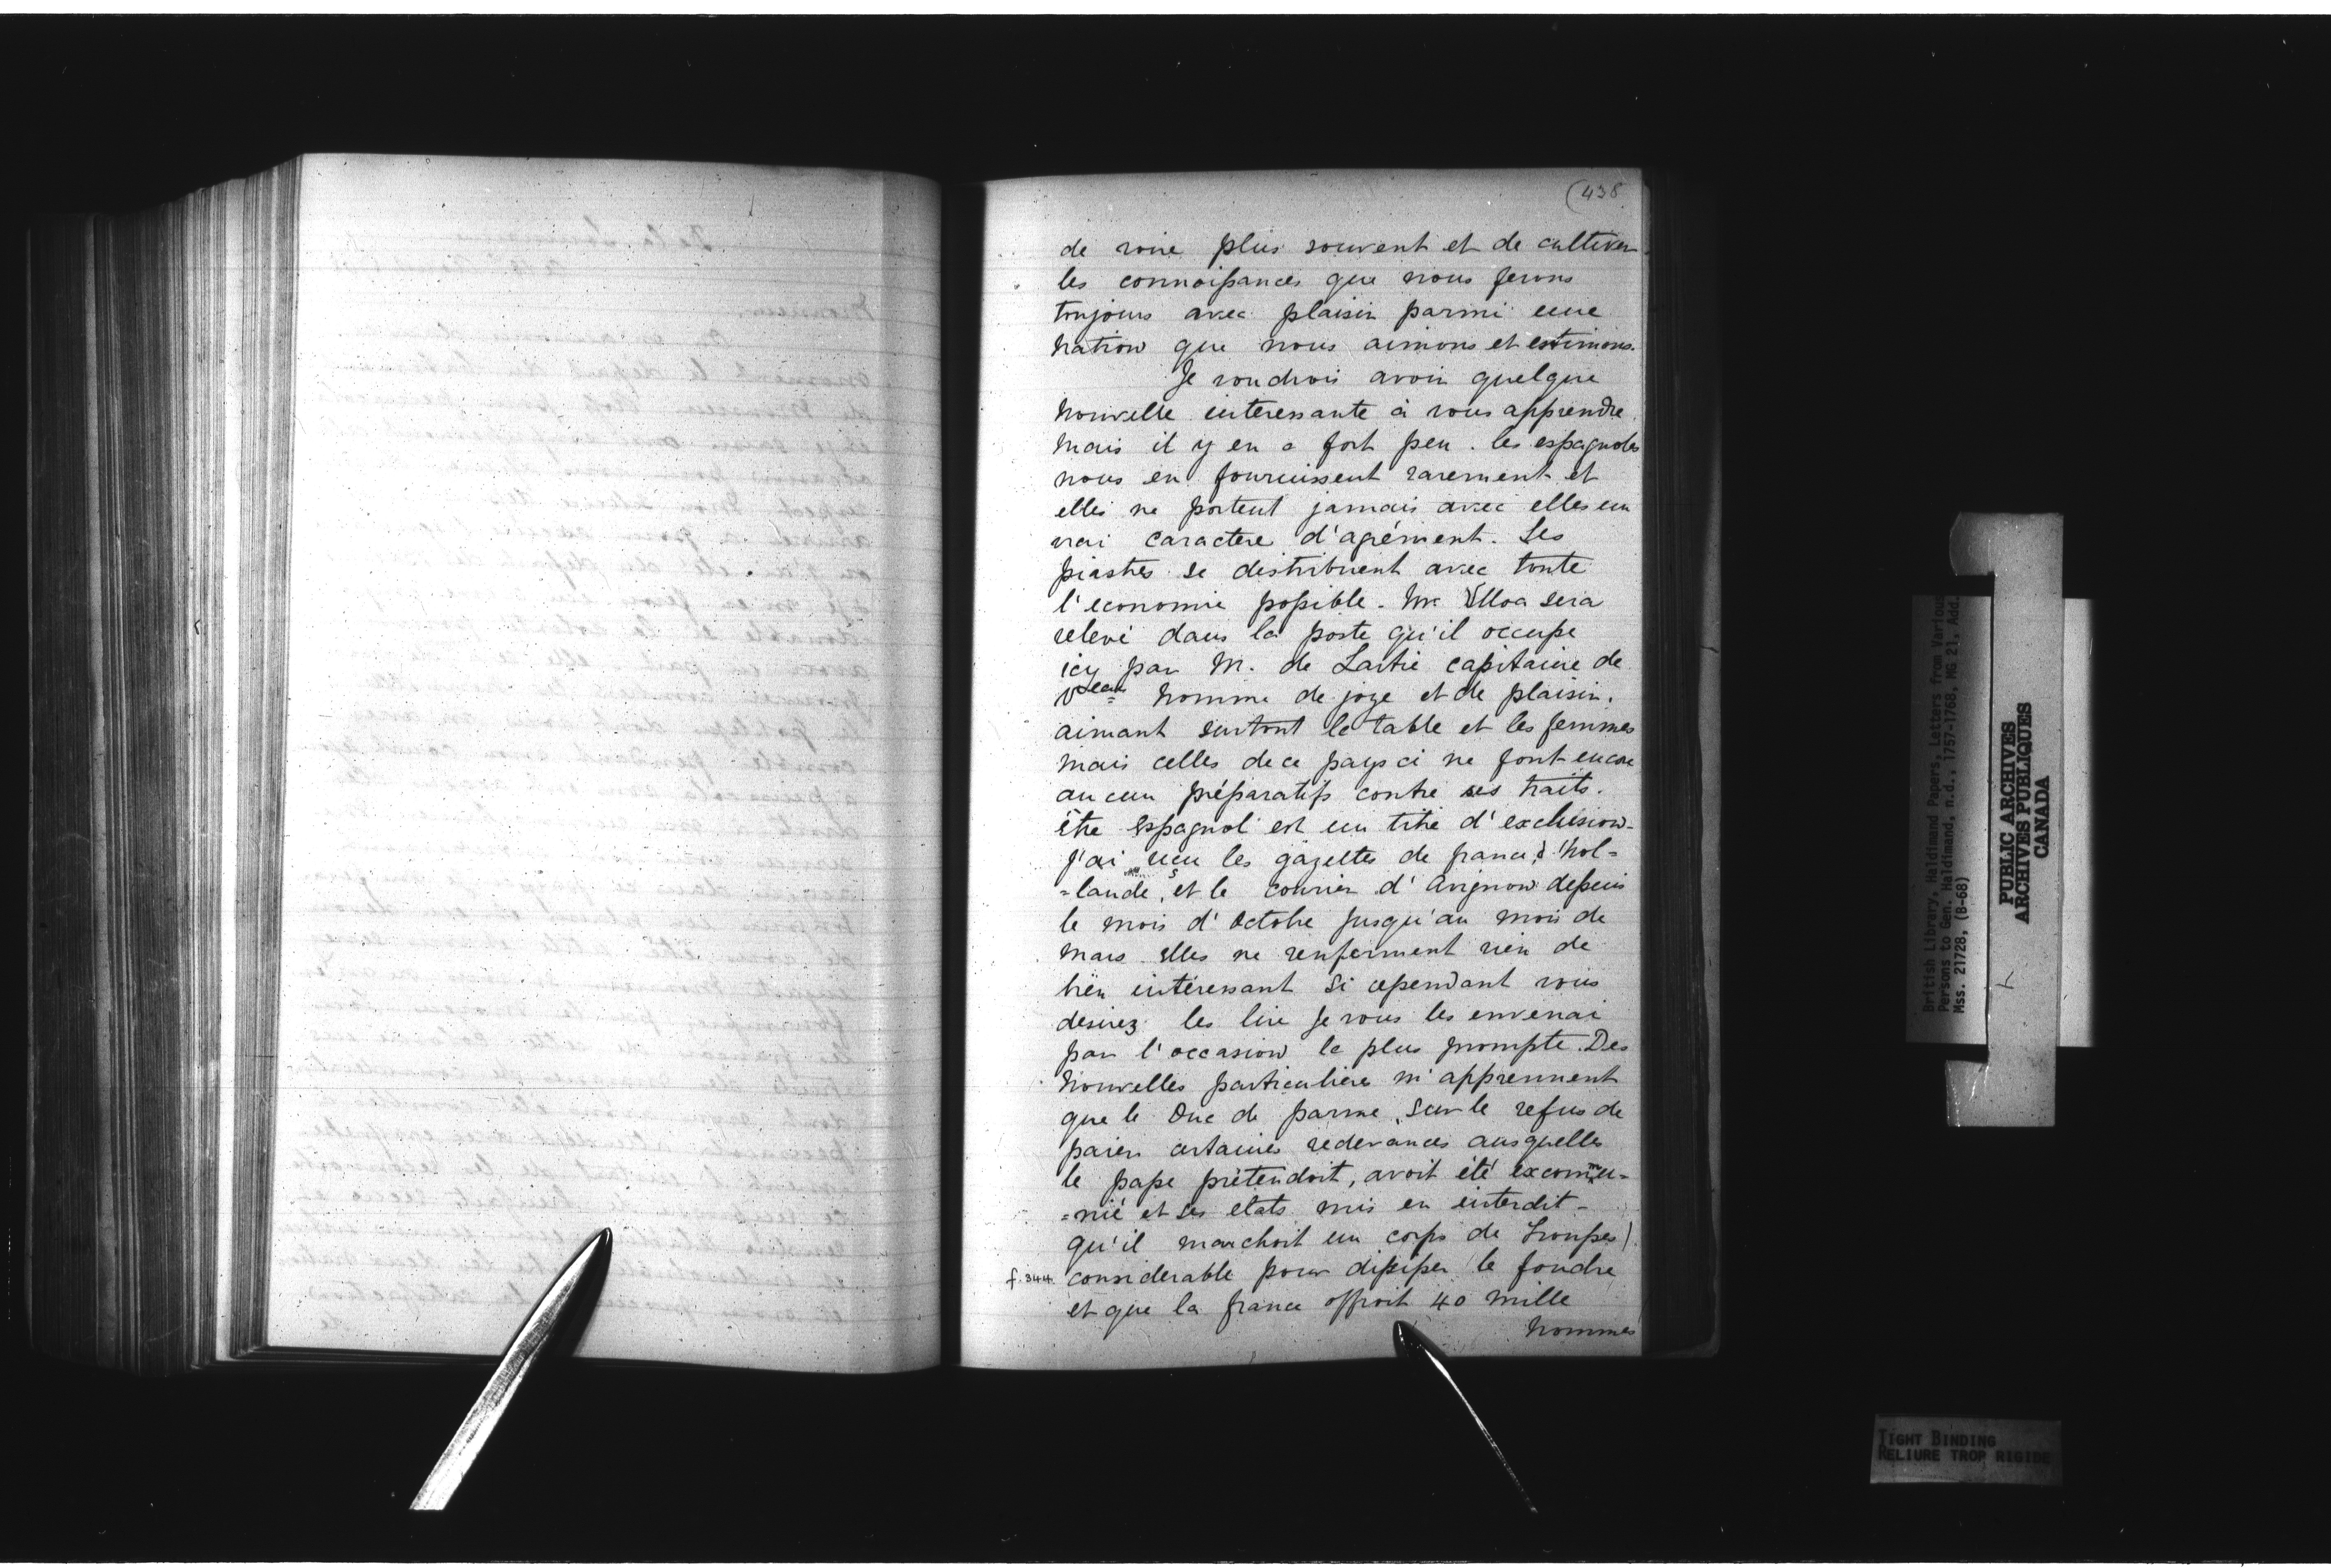 (438
de voire plus souvent et de cultiver
les connoissances que nous ferons
toujours avec plaisir parmi une
nation que nous aimons et estimons.
Je voudrois avoir quelque
nouvelle interessante à vous apprendre
mais il y en a fort peu. les espagnoles
nous en fournissent rarement et
elles ne portent jamais avec elles un
vrai caractere d'agrément. Les
piastres se distribuent avec toute
l'economie possible. Mr Ulloa sera
relevé dans la poste qu'il occupe
icy par M. de Lartie capitaine de
homme de joye et de plaisir.
aimant surtout la table et les femmes
mais celles de ce pays ci ne font encore
aucun préparatifs contre ses traits.
être Espagnol est un titre d'exclusion
j'ai reçu les gazettes de france, d'hol=
=lande, et le courier d'Avignon depuis
le mois d'Octobre jusqu'au mois de
mars elles ne renferment rien de
bien intéressant Si cependant vous
desirez les lire Je vous les enverrai
par l'occasion la plus prompte. Des
nouvelles particulière m'apprennent
que le Duc de parme, sur le refus de
paier certaines redevances ausquelles
le pape prétendoit, avoit été excommu=
=nié et ses etats mis en interdit -
qu'il marchoit un corps de Troupes
f.344. considerable pour dissiper le foudre
et que la france offroit 40 mille
hommes
British Library, Haldimand Papers, Letters from Various
Persons to Gen. Haldimand, n.d., 1757-1768, MG 21, Add.
Mss. 21728, (B-68)
PUBLIC ARCHIVES
ARCHIVES PUBLIQUES
CANADA
TIGHT BINDING
RELIURE TROP RIGIDE